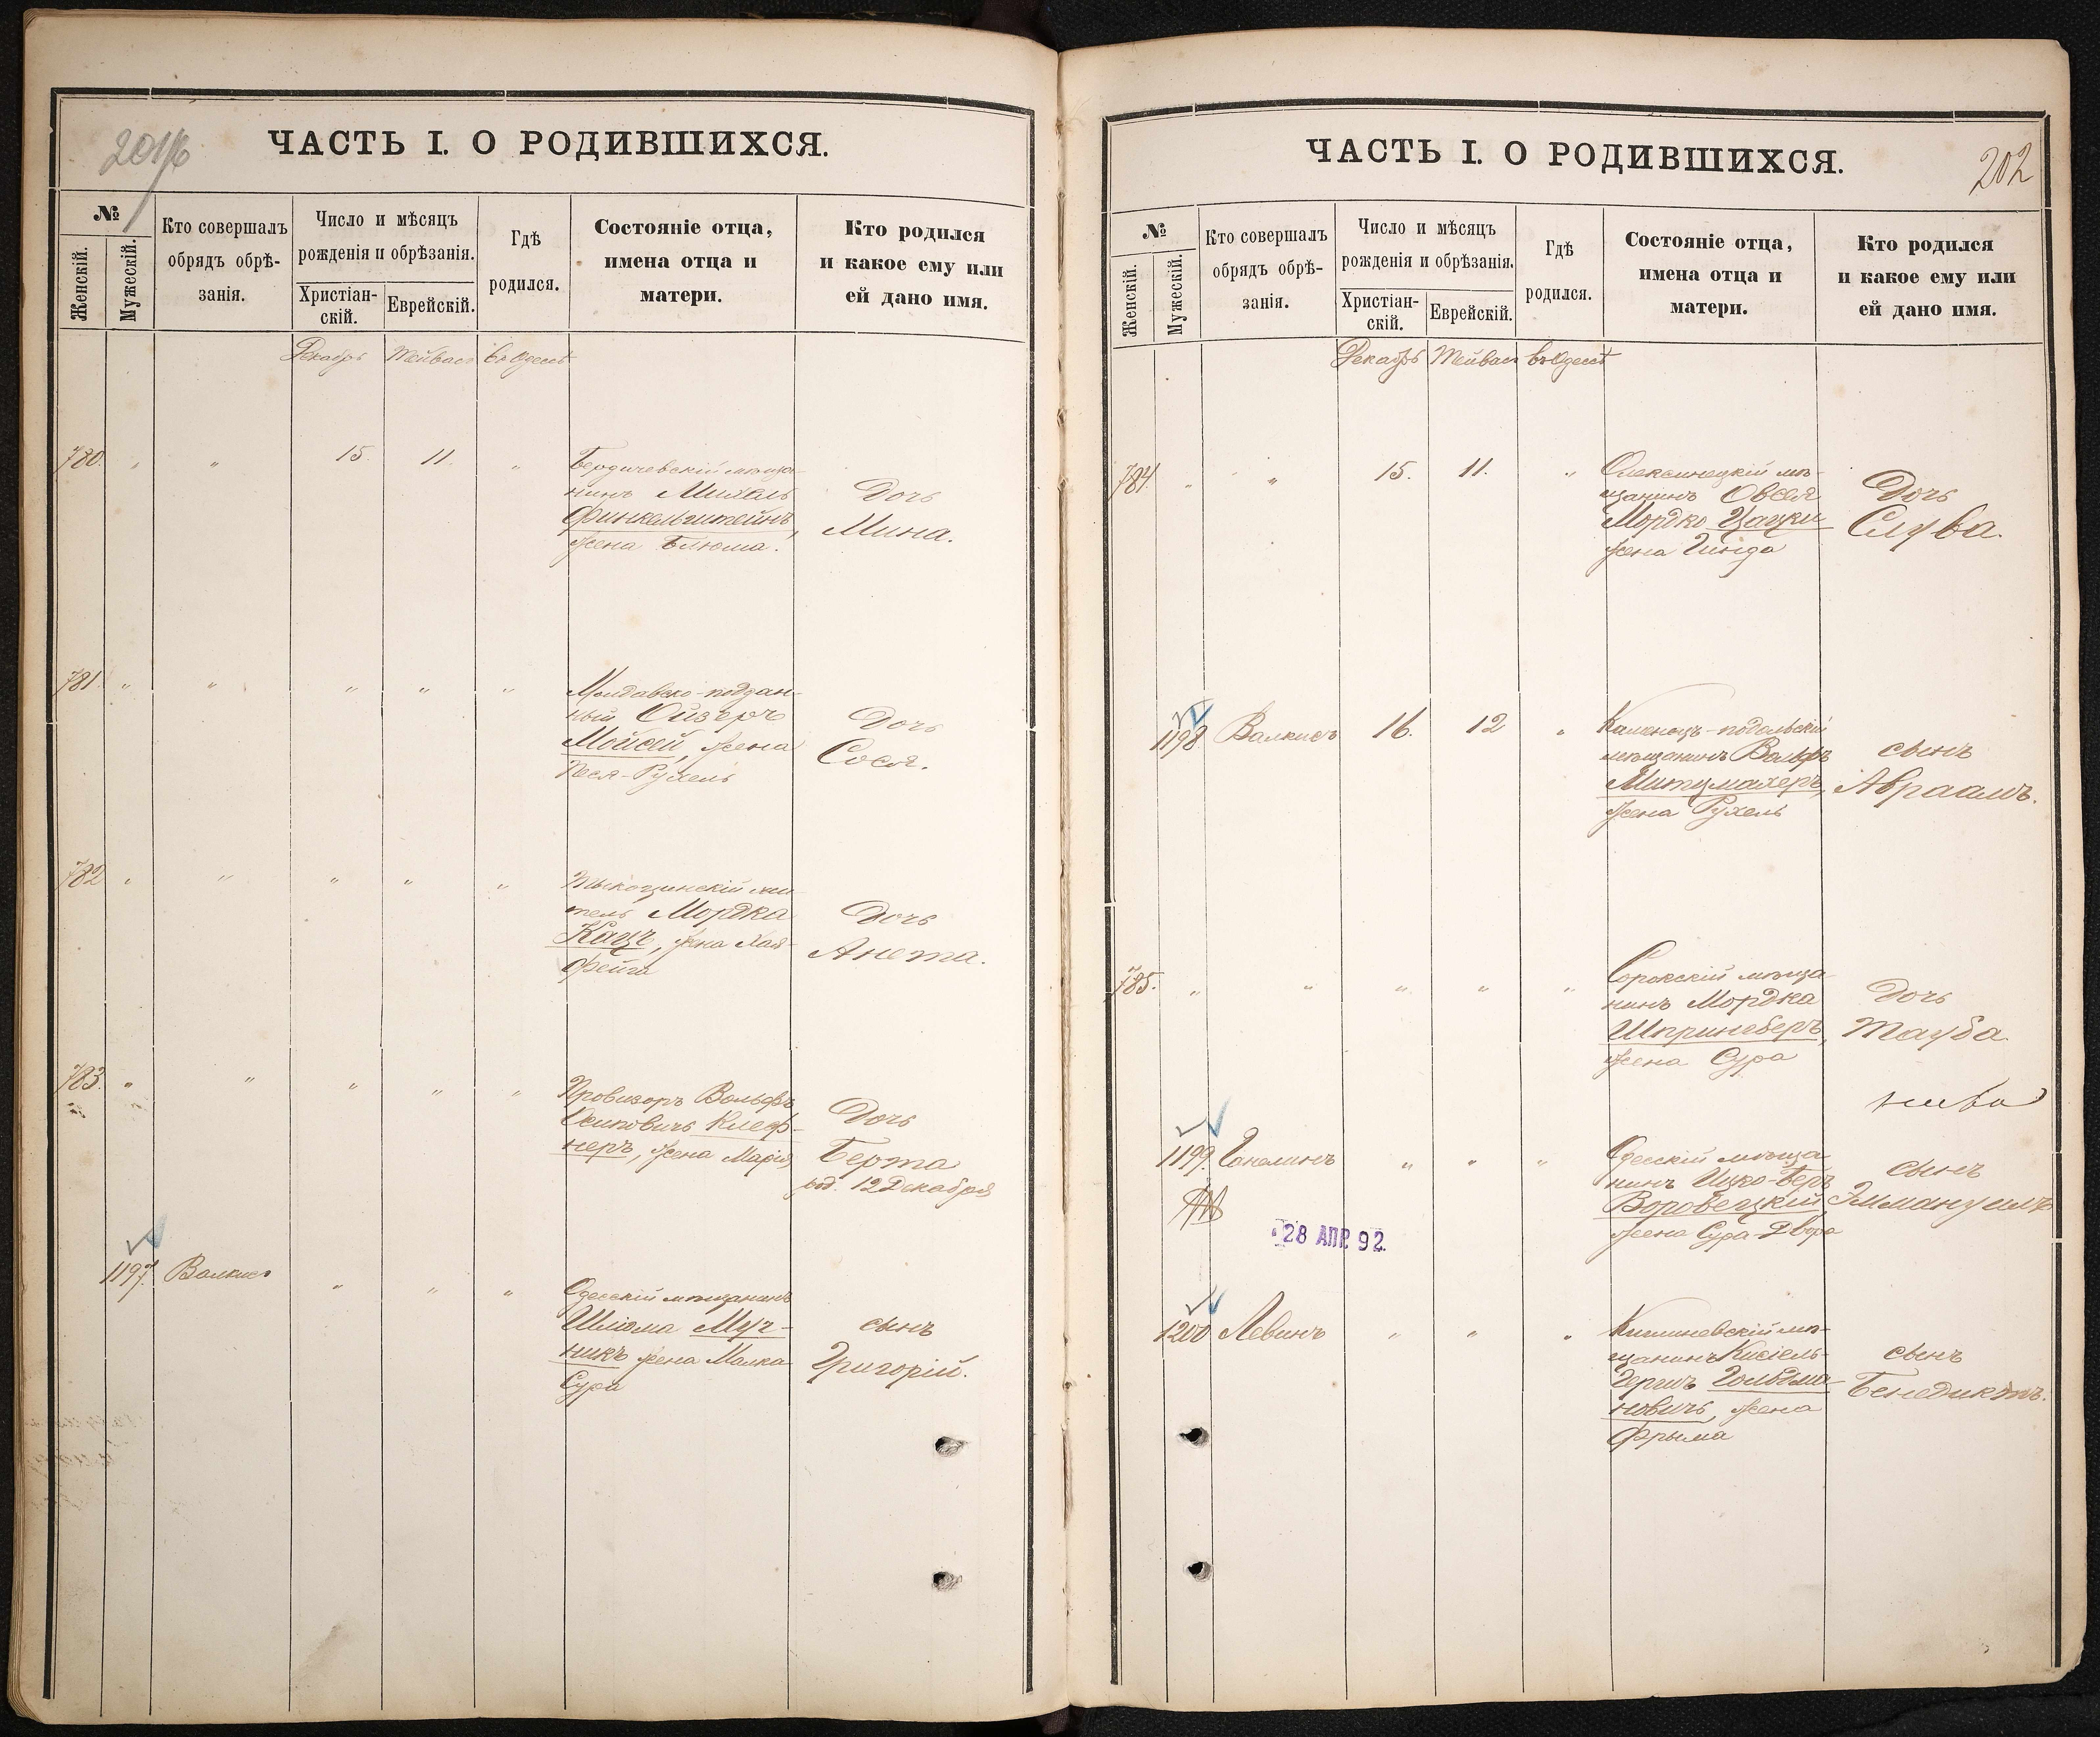 ЧАСТЬ I. О РОДИВШИХСЯ.
№
Женскій.
Мужескій.
Кто совершалъ
обрядъ обрѣ-
занія.
Число и мѣсяцъ
рожденія и обрѣзанія.
Христіан-
скій.
Еврейскій.
Гдѣ
родился.
Состояніе отца,
имена отца и
матери.
Кто родился
и какое ему или
ей дано имя.
Декабрь Тейвасъ въ Одессѣ
780. " " 15. 11. "
Бердичевскій мѣща-
нинъ Михаль
Финкельштейнъ,
жена Блюма.
Дочь
Мина.
781. " " " " "
Молдавско-поддан-
ный Ойзеръ
Мойсей, жена
Песя-Рухель
Дочь
Сося.
782 " " " " "
Тыкоцинскій жи-
тель Мордка
Кацъ, жена Хая-
Фейга
Дочь
Анета.
783. " " " " "
Провизоръ Вольфъ
Осиповичъ Клеф-
неръ, жена Марія
Дочь
Берта
род. 12 Декабря
1197. Валкисъ " " "
Одесскій мѣщанинъ
Шлиома Муч-
никъ жена Малка
Сура
сынъ
Григорій.
ЧАСТЬ I. О РОДИВШИХСЯ.
202
№
Женскій.
Мужескій.
Кто совершалъ
обрядъ обрѣ-
занія.
Число и мѣсяцъ
рожденія и обрѣзанія.
Христіан-
скій.
Еврейскій.
Гдѣ
родился.
Состояніе отца,
имена отца и
матери.
Кто родился
и какое ему или
ей дано имя.
Декабрь Тейвасъ въ Одессѣ
784. " " 15. 11. "
Олексинецкій мѣ-
щанинъ Овсей
Мордко Цацки
жена Гинда
Дочь
Слува.
1198. Валкисъ 16. 12 "
Каменецъ-подольскій
мѣщанинъ Вольфъ
Митцмахеръ,
жена Рухель
сынъ
Авраамъ.
785. " " " " "
Сорокскій мѣща-
нинъ Мордка
Шпрингберъ,
жена Сура
Дочь
Тауба.
1199. Гокелинъ " " "
Одесскій мѣща-
нинъ Ицко-Беръ
Воровецкій
жена Сура-Двора
сынъ
Эммануилъ
28 АПР. 92
1200 Левинъ " " "
Кишиневскій мѣ-
щанинъ Кисіель-
Гершъ Гольдма-
новичъ, жена
Фрыма
сынъ
Бенедиктъ.